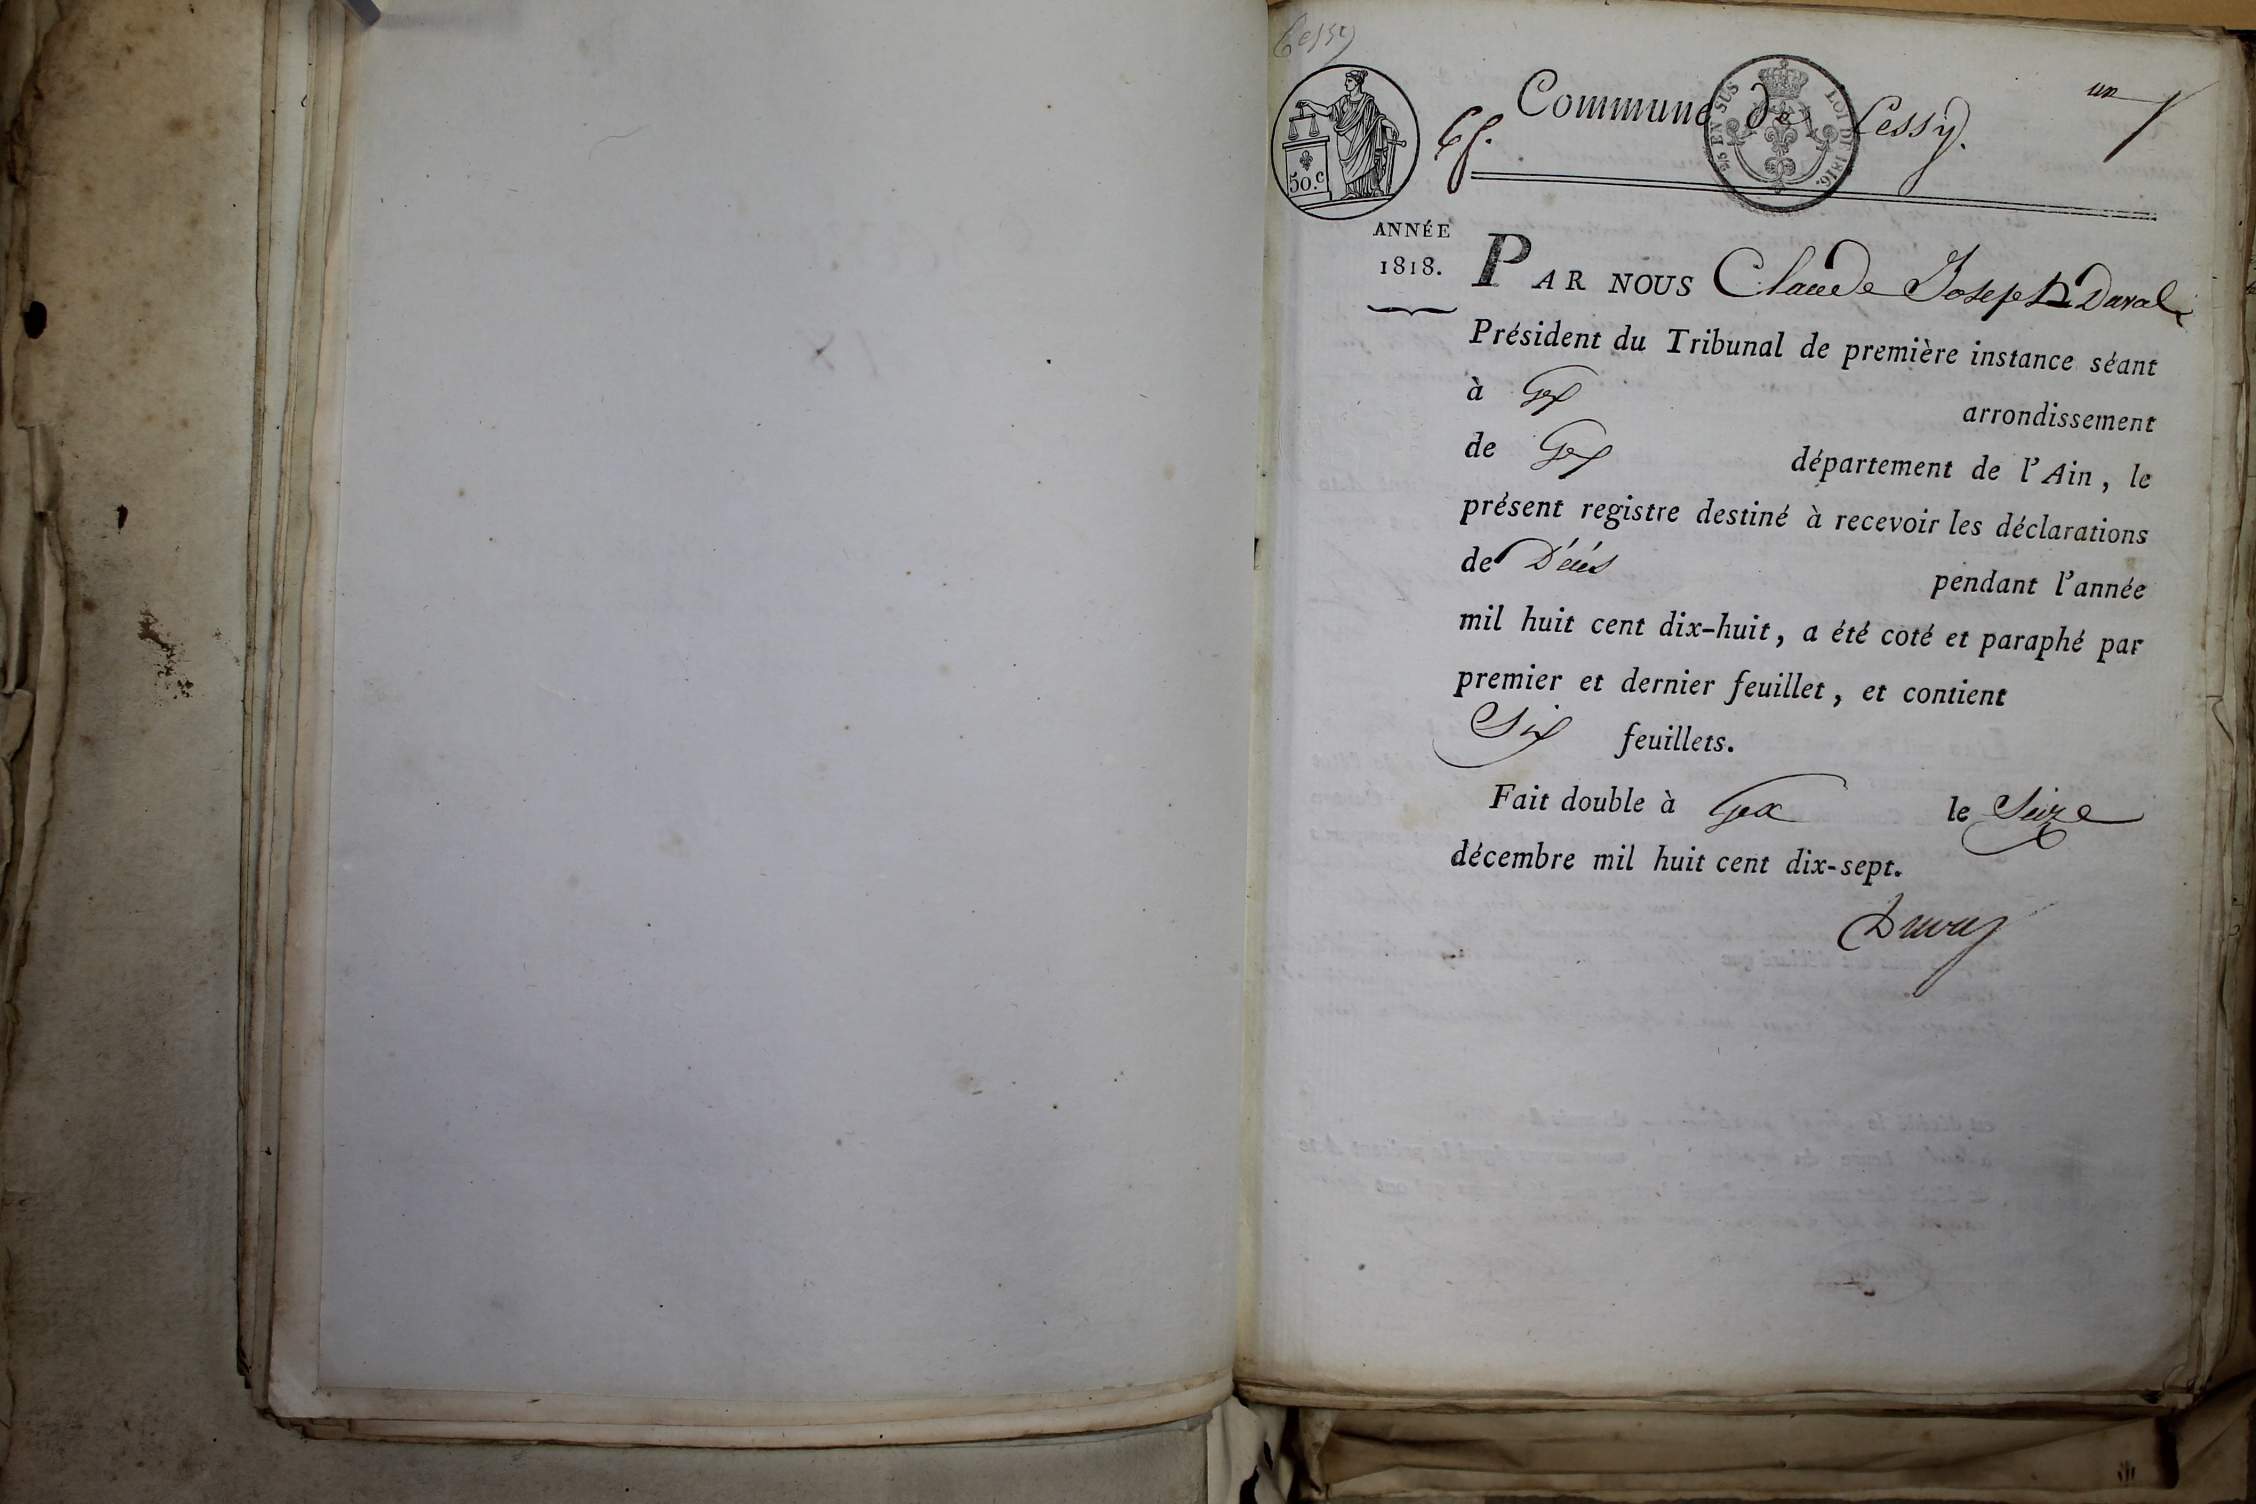 Cessy
50.c
25 EN SUS
LOI DE 1816.
Commune de Cessy.
un
ANNÉE
1818.
PAR NOUS Claude Joseph Duval
Président du Tribunal de première instance séant
à Gex arrondissement
de Gex département de l'Ain, le
présent registre destiné à recevoir les déclarations
de Décés pendant l'année
mil huit cent dix-huit, a été coté et paraphé par
premier et dernier feuillet, et contient
Six feuillets.
Fait double à Gex le Seize
décembre mil huit cent dix-sept.
Duval